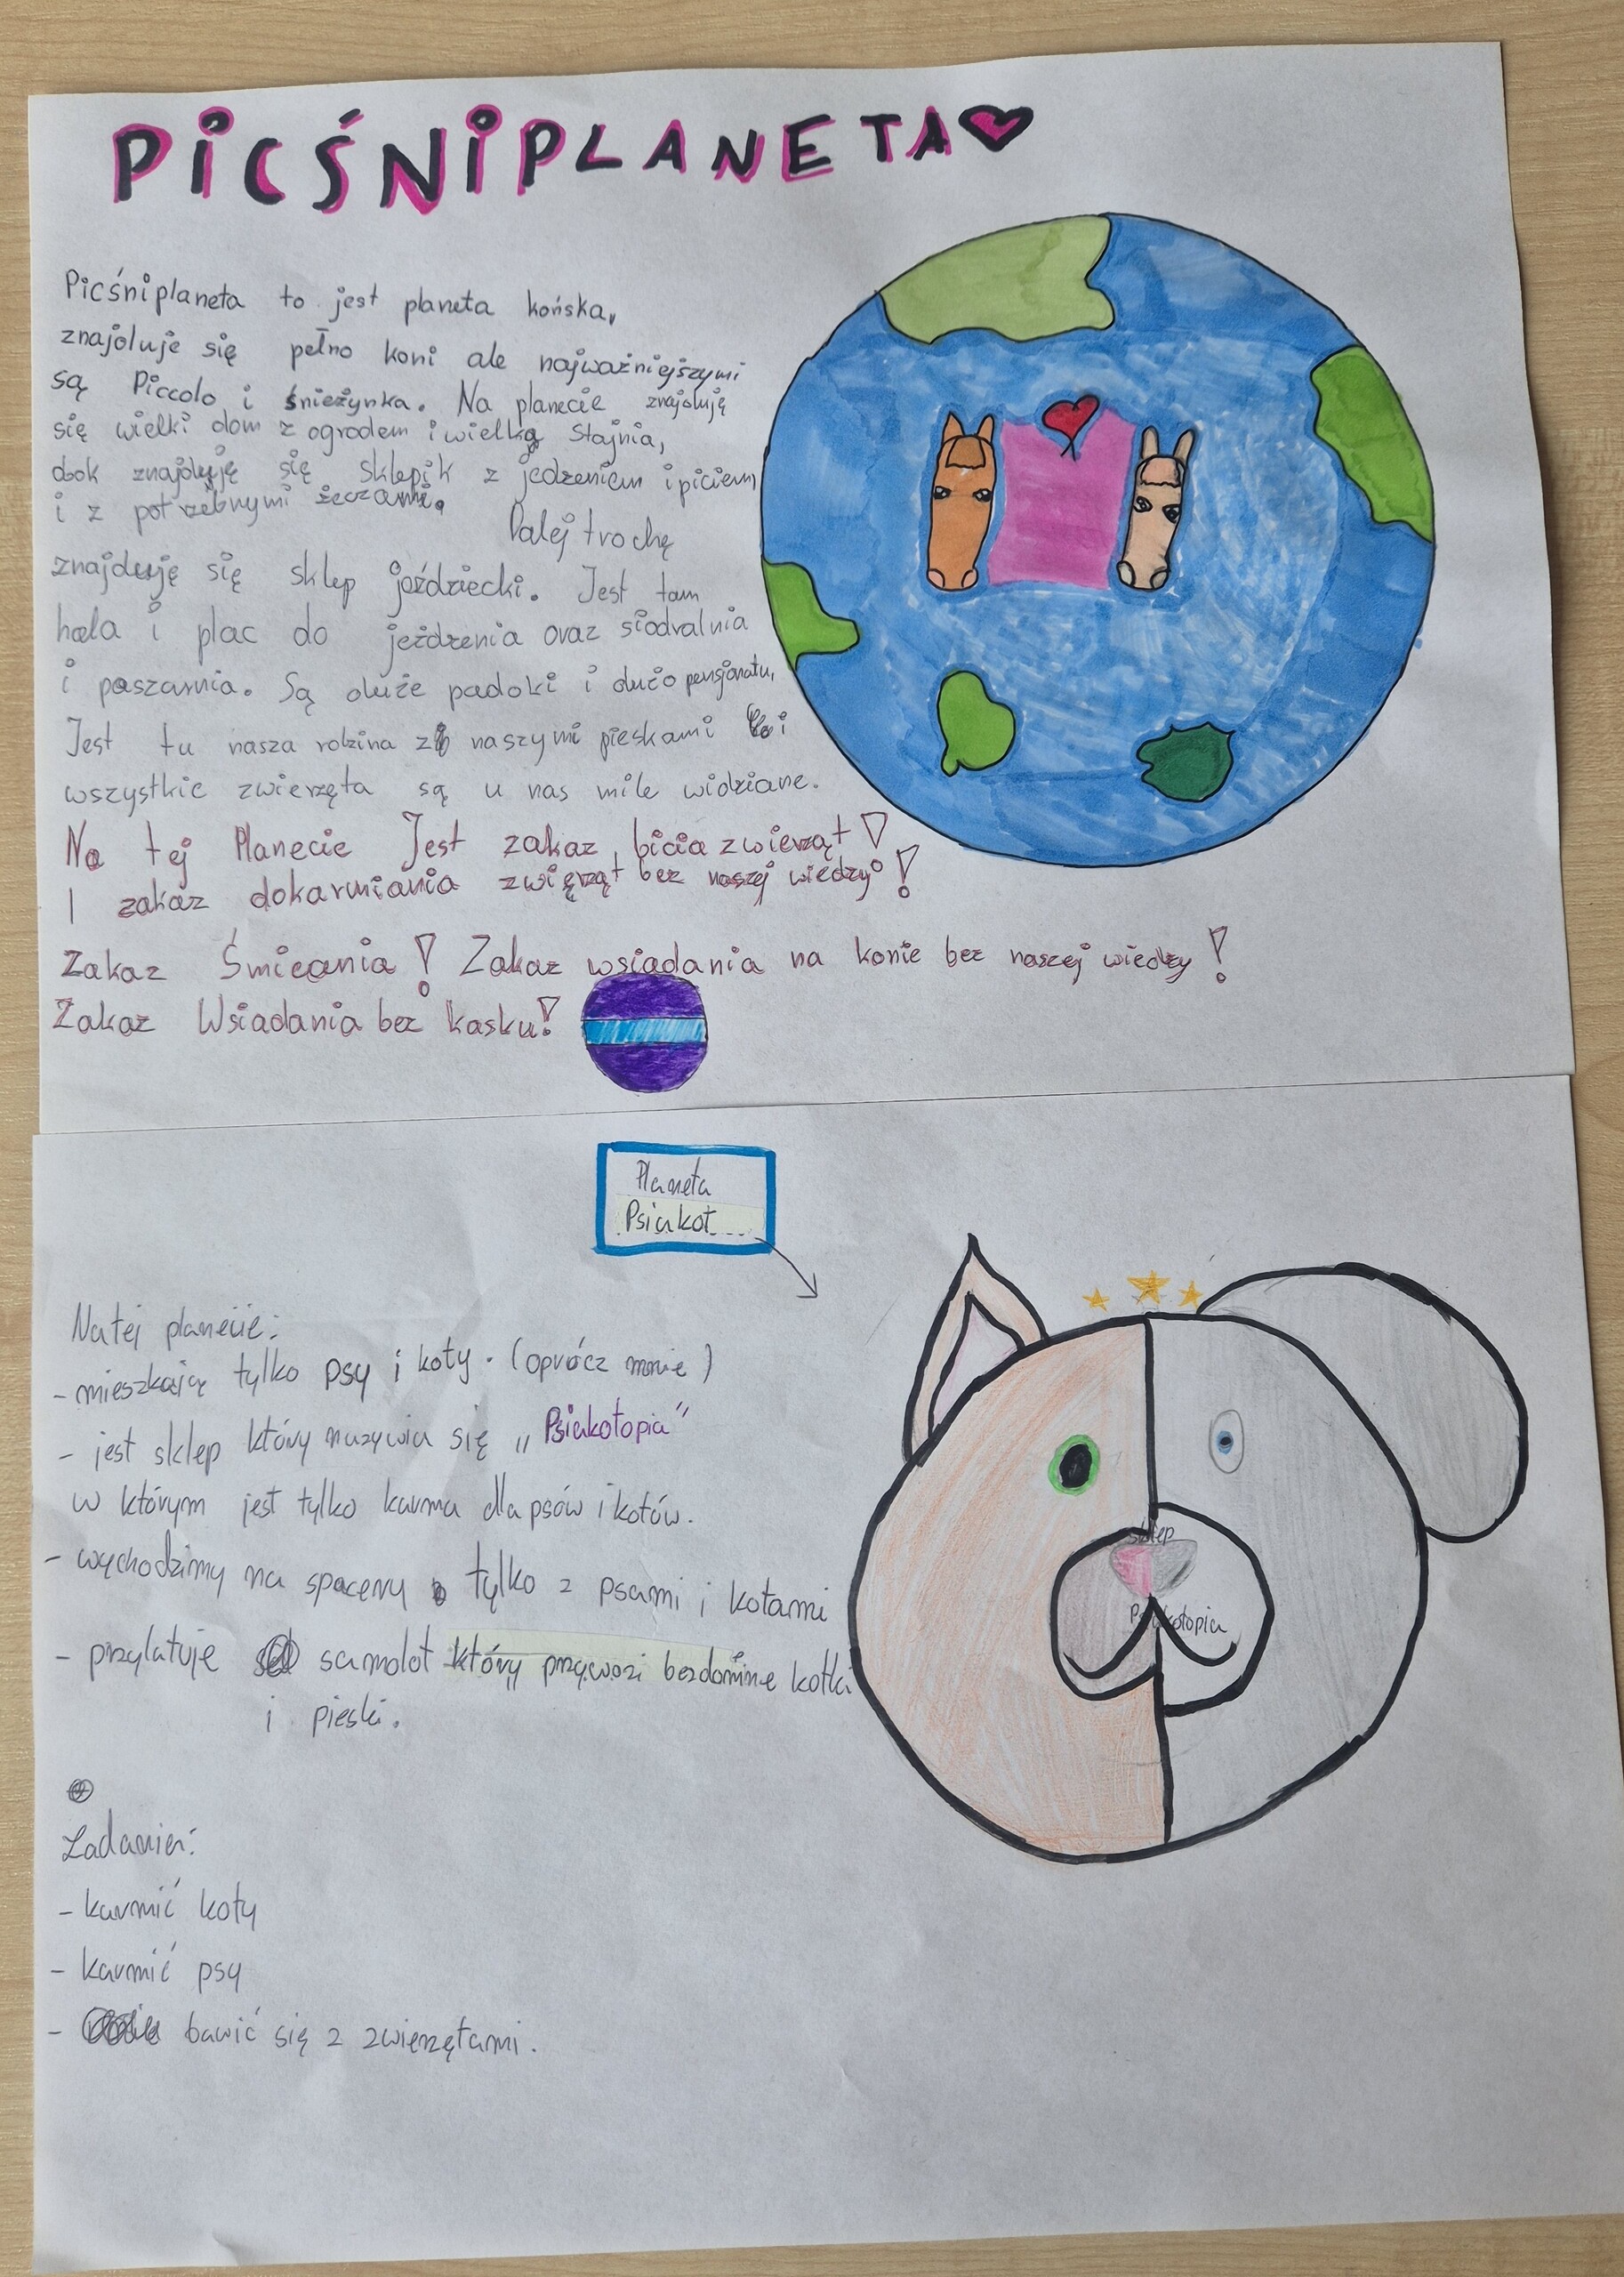 PiCŚNiPLANETA
Picśniplaneta to jest planeta końska,
znajduje się pełno koni ale najważniejszymi
są Piccolo i śnieżynka. Na planecie znajdują
się wielki dom z ogrodem i wielką Stajnia,
obok znajduję się sklepik z jedzeniem i piciem
i z potrzebnymi żeczami.
Dalej trochę
znajduję się sklep jeździecki. Jest tam
hala i plac do jeżdżenia oraz siodralnia
i paszarnia. Są duże padoki i dużo pensjonatu,
Jest tu nasza rodzina z naszymi pieskami i
wszystkie zwierzęta są u nas mile widziane.
Na tej Planecie Jest zakaz bicia zwierząt!
I zakaz dokarmiania zwięrząt bez naszej wiedzy!
Zakaz Śmiecania! Zakaz wsiadania na konie bez naszej wiedzy!
Zakaz Wsiadania bez kasku!
Planeta
Psiakot
Na tej planecie:
- mieszkają tylko psy i koty. (oprócz mnie)
- jest sklep który nazywia się „Psiakotopia”
w którym jest tylko karma dla psów i kotów.
- wychodzimy na spacery tylko z psami i kotami
- przylatuje samolot który przywozi bezdomne kotki
i pieski.
sklep
Psiakotopia
Zadania:
- karmić koty
- karmić psy
- bawić się z zwierzętami.